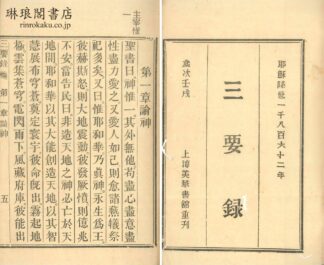 琳琅閣書店
rinrokaku.co.jp
耶穌降世一千八百六十二年
三要錄
歲次壬戌
上海美華書館重刊
主宰惟
一
第一章論神
聖書曰神惟一其外無他苟盡心盡意盡
性盡力愛之又愛人如己則愈諸燔犧祭
祀多矣又曰惟耶和華乃眞神永生爲王
彼赫斯怒則大地震動彼發厥憤則億兆
不安當告民曰非造天地之神必亡於天
地間耶和華以其大能創造天地以其智
慧展布穹蒼奠定寰宇彼命旣出霧起地
極雲集蒼穹電閃雨下風藏府庫彼能出
三要錄
論神
五